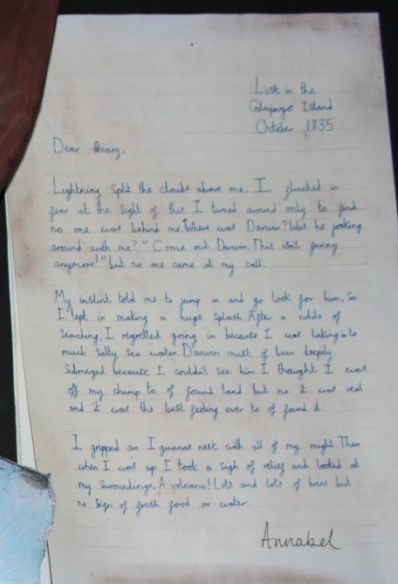 Lost in the
Galapagos Island
October 1835
Dear Diary,
Lightning split the clouds above me. I flinched in
fear at the sight of this. I turned around only to find
no one was behind me. Where was Darwin? Was he joking
around with me? "Come out Darwin. This isn't funny
anymore!" but no one came at my call.
My instint told me to jump in and go look for him, so
I lept in making a huge splash. After a while of
searching, I regretted going in because I was taking in to
much salty sea water. Darwin must of been deeply
submerged because I couldn't see him I thought I was
off my champ to of found land but no it was real
and it was the best feeling ever to of found it.
I gripped an Iguanas nest with all of my might. Then
when I was up I took a sigh of relief and looked at
my surroundings. A volcano! Lots and lots of but
no sign of fresh food or water.
Annabel